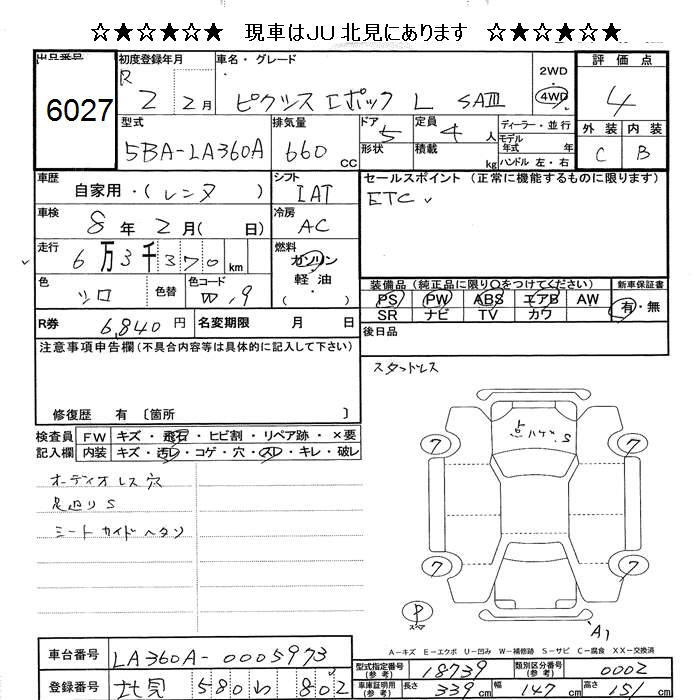 ☆★☆★☆★ 現車はJU北見にあります ☆★☆★☆★
出品番号 6027
初度登録年月 R 2 2月
車名・グレード ピクシス エポック L SAⅢ
2WD 4WD
評価点 4
型式 5BA-LA360A
排気量 660 CC
ドア 5 定員 4 人
形状 積載 kg
ディーラー・並行
モデル年式 年
ハンドル 左・右
外装 内装
C B
車歴 自家用・(レンタ)
シフト IAT
セールスポイント (正常に機能するものに限ります)
ETC
車検 8年 2月( 日)
冷房 AC
走行 6万3千370 km
燃料 ガソリン
軽油
(・)
色 シロ 色替 色コード W,9
装備品(純正品に限り○をつけてください) 新車保証書
PS PW ABS エアB AW 有・無
SR ナビ TV カワ
R券 6,840円 名変期限 月 日
後日品
注意事項申告欄(不具合内容等は具体的に記入して下さい)
スタッドレス
修復歴 有〔箇所 〕
点ハゲ、S
検査員 FW キズ・飛石・ヒビ割・リペア跡・×要
記入欄 内装 キズ・汚レ・コゲ・穴・スレ・キレ・破レ
7 7
オーディオレス 穴
足廻りS
シートガイドヘタリ
7 7
P
A1
A-キズ E-エクボ U-凹み W-補修跡 S-サビ C-腐食 XX-交換済
車台番号 LA360A-0005973
型式指定番号(参考) 18739 類別区分番号(参考) 0002
登録番号 北見 580 わ 802
車庫証明用(参考) 長さ 339cm 幅 147cm 高さ 151cm